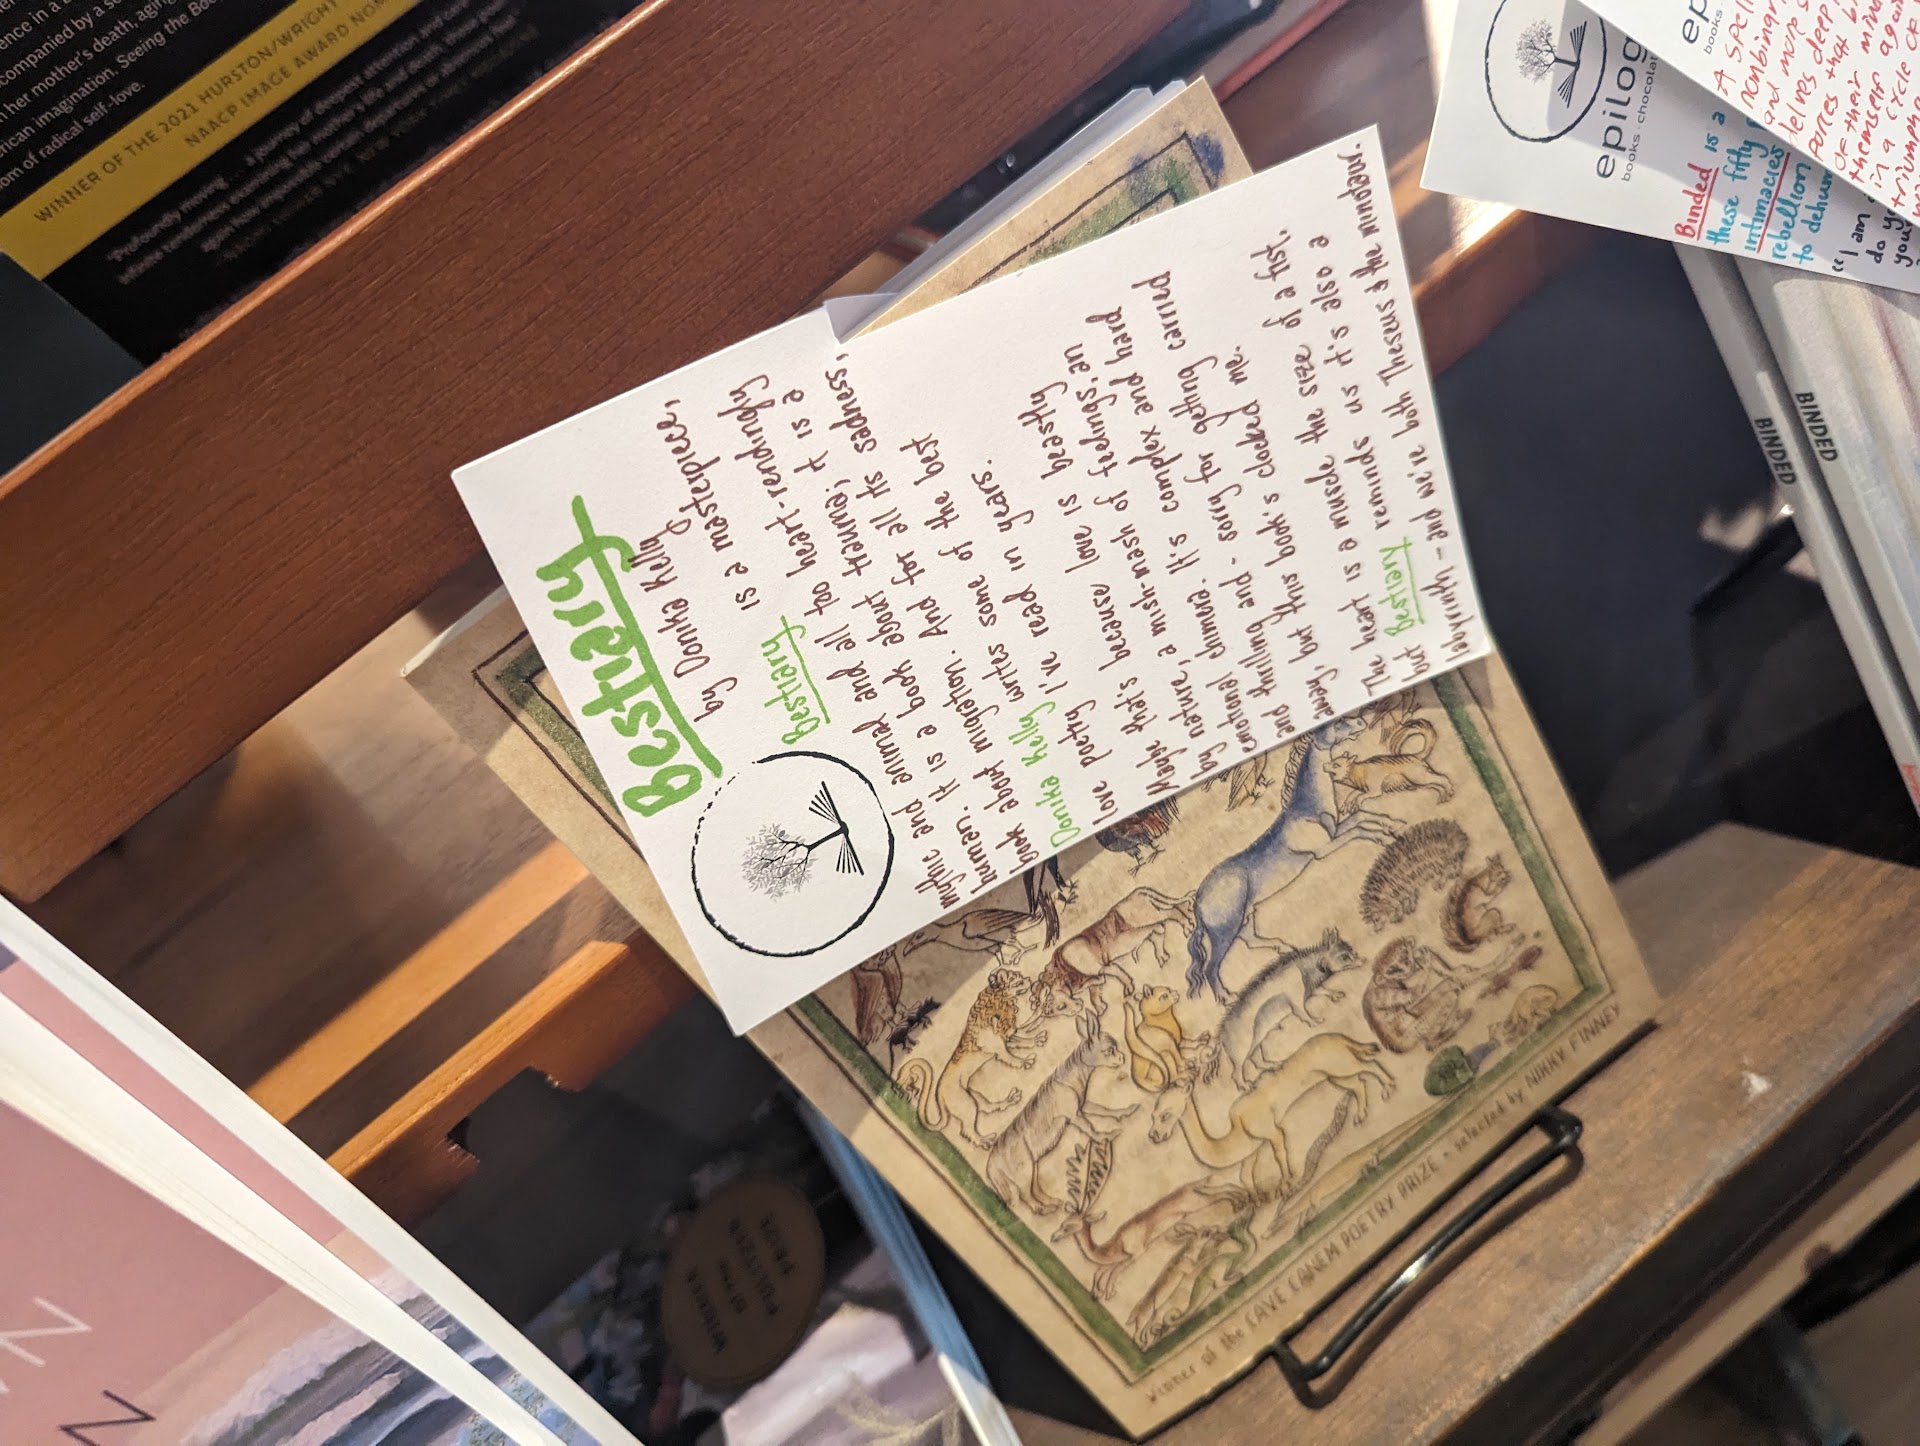 Bestiary
by Donika Kelly
Bestiary is a masterpiece,
mythic and animal and all too heart-rendingly
human. It is a book about trauma; it is a
book about migration. And for all its sadness,
Donika Kelly writes some of the best
love poetry I've read in years.
Maybe that's because love is beastly
by nature, a mish-mash of feelings, an
emotional chimera. It's complex and hard
and thrilling and - sorry for getting carried
away, but this book's clocked me.
The heart is a muscle the size of a fist,
but Bestiary reminds us it's also a
labyrinth - and we're both Theseus & the minotaur.
Winner of the CAVE CANEM POETRY PRIZE • selected by NIKKY FINNEY
ence in a
companied by a
her mother's death, aging
rican imagination. Seeing the Bo
om of radical self-love.
WINNER OF THE 2021 HURSTON/WRIGHT
NAACP IMAGE AWARD NOM
"Profoundly moving . . . a journey of deepest attention and care
infinite tenderness, examining her mother's life and death. These poems
again how impossible certain departures
epilog
books·chocolat
Binded is a
these fifty
intimacies
rebellion
to dehum
"I am
do yo
your
ep
books
A spell
nonbinary
and more
delves deep
forces that bi
of their mind
themself again
in a cycle of
triumph
BINDED
BINDED
WINNER
OF THE
PULITZER
PRIZE
N
N